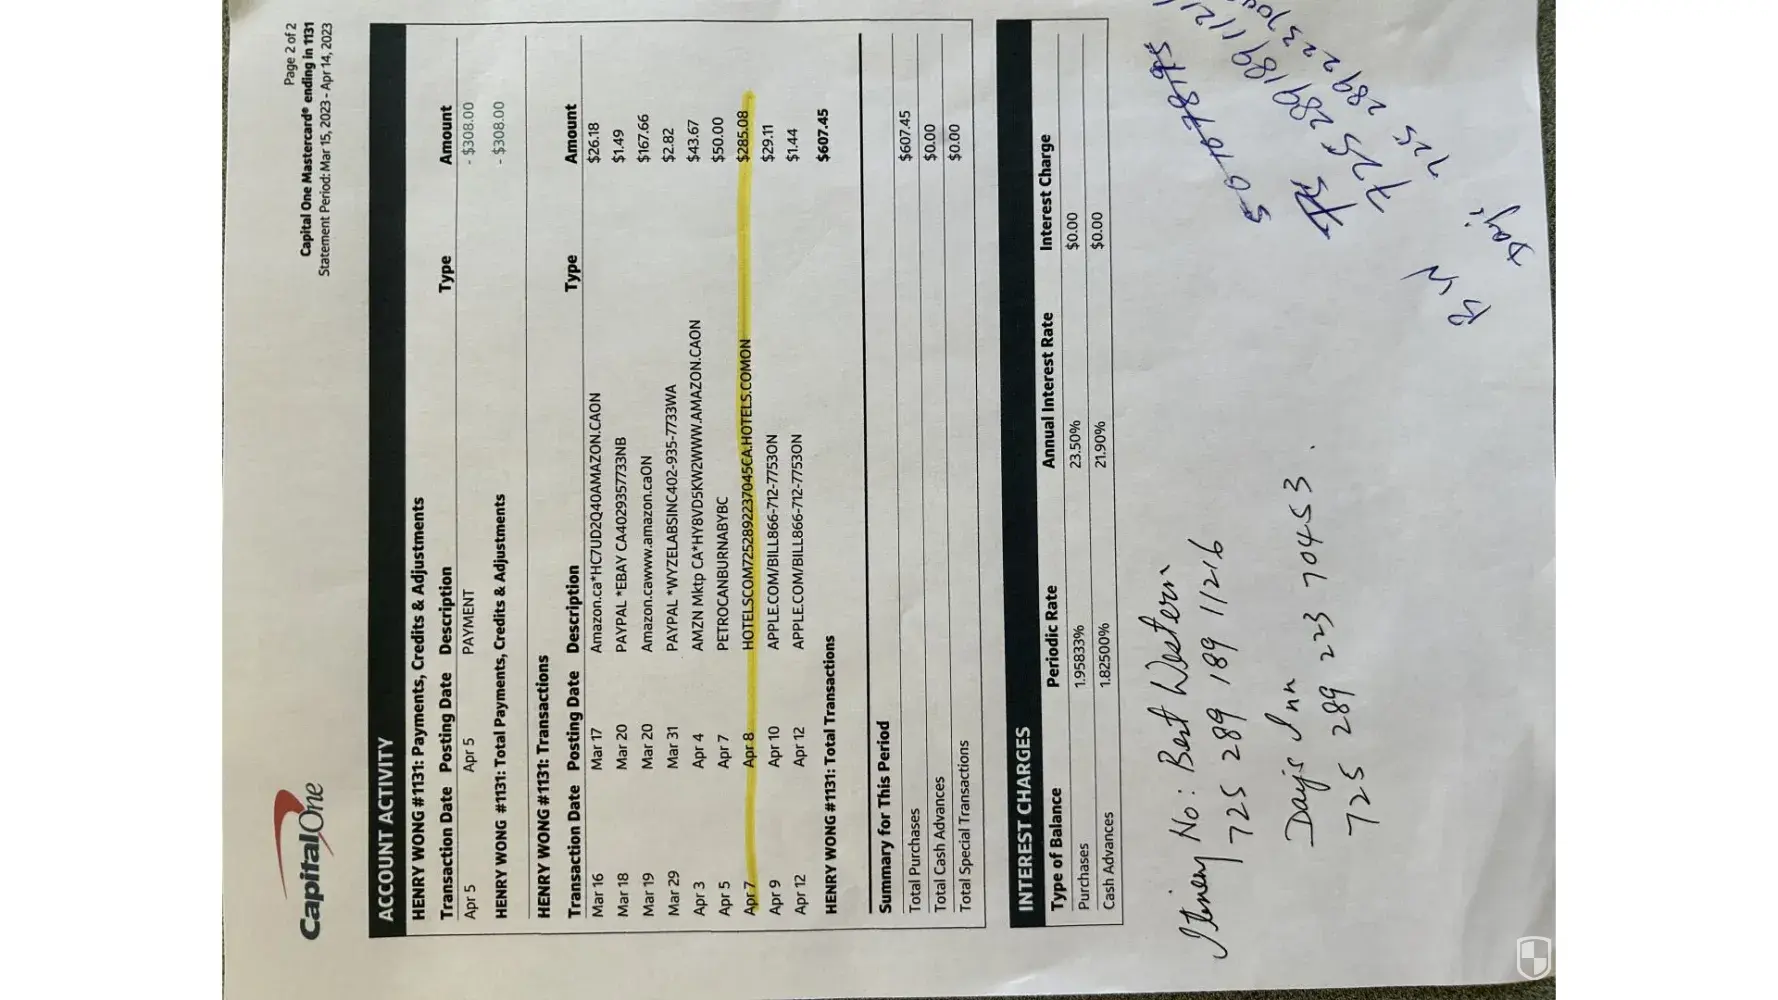 Capital One
Page 2 of 2
Capital One Mastercard® ending in 1131
Statement Period: Mar 15, 2023 - Apr 14, 2023
ACCOUNT ACTIVITY
HENRY WONG #1131: Payments, Credits & Adjustments
Transaction Date Posting Date Description Type Amount
Apr 5 Apr 5 PAYMENT - $308.00
HENRY WONG #1131: Total Payments, Credits & Adjustments - $308.00
HENRY WONG #1131: Transactions
Transaction Date Posting Date Description Type Amount
Mar 16 Mar 17 Amazon.ca*HC7UD2Q40AMAZON.CAON $26.18
Mar 18 Mar 20 PAYPAL *EBAY CA4029357733NB $1.49
Mar 19 Mar 20 Amazon.cawww.amazon.caON $167.66
Mar 29 Mar 31 PAYPAL *WYZELABSINC402-935-7733WA $2.82
Apr 3 Apr 4 AMZN Mktp CA*HY8VD5KW2WWW.AMAZON.CAON $43.67
Apr 5 Apr 7 PETROCANBURNABYBC $50.00
Apr 7 Apr 8 HOTELSCOM7252892237045CA.HOTELS.COMON $285.08
Apr 9 Apr 10 APPLE.COM/BILL866-712-7753ON $29.11
Apr 12 Apr 12 APPLE.COM/BILL866-712-7753ON $1.44
HENRY WONG #1131: Total Transactions $607.45
Summary for This Period
Total Purchases $607.45
Total Cash Advances $0.00
Total Special Transactions $0.00
INTEREST CHARGES
Type of Balance Periodic Rate Annual Interest Rate Interest Charge
Purchases 1.95833% 23.50% $0.00
Cash Advances 1.82500% 21.90% $0.00
Itinery No: Best Western
725 289 189 11216
Days Inn
725 289 223 70453.
725 289 189 1121
725 289 223 704
BW
Days